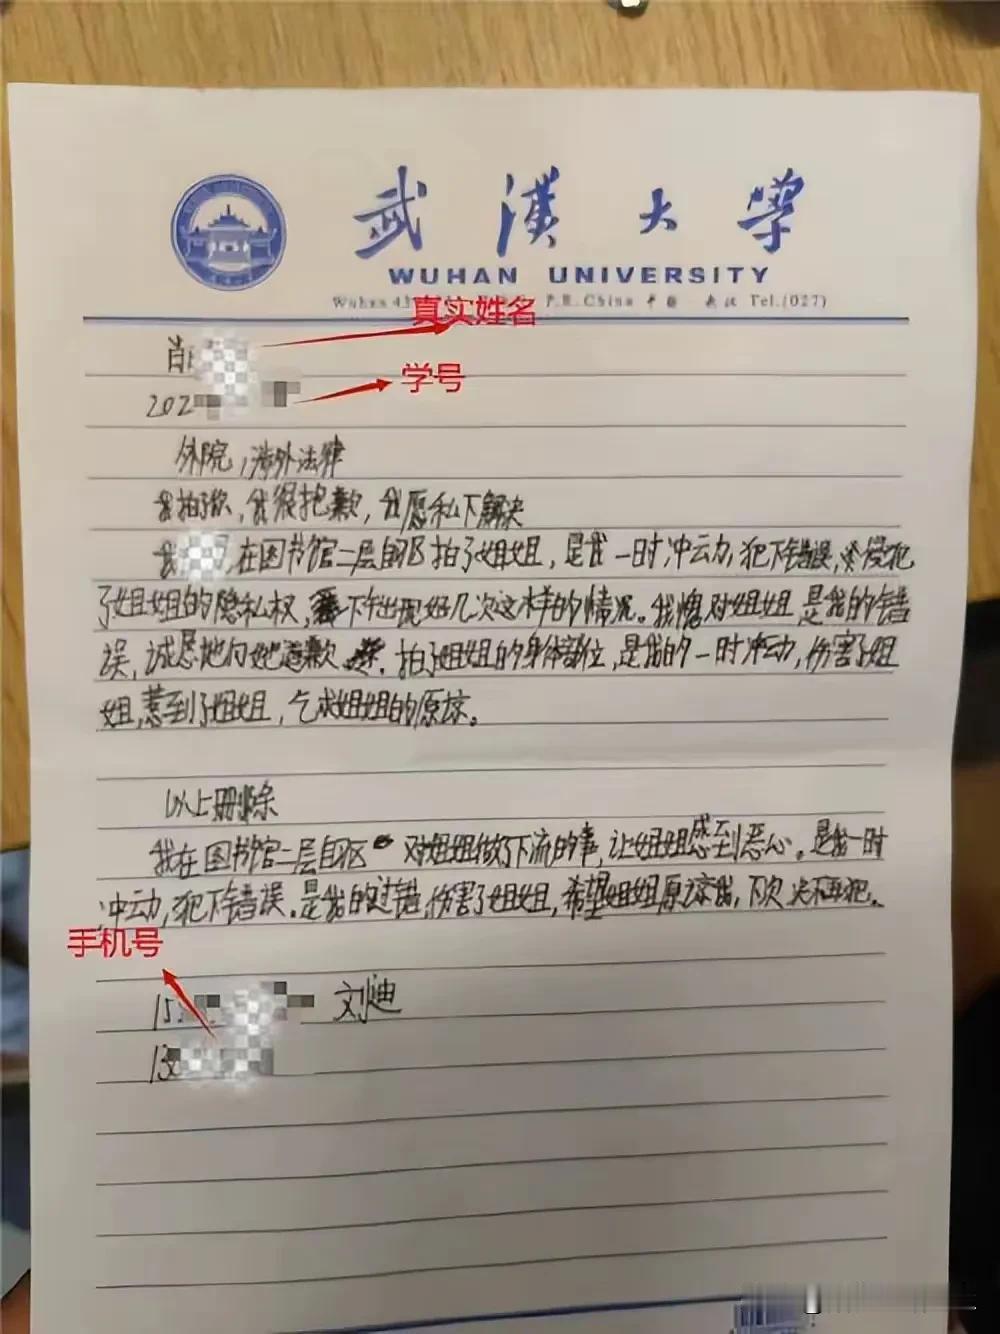 武漢大學
WUHAN UNIVERSITY
Wuhan 43 P.R.China 中国·武汉 Tel.(027)
真实姓名
肖
学号
202
外院,涉外法律
我拍了你,我很抱歉,我愿私下解决
我,在图书馆二层自区拍了姐姐,是我一时冲动,犯下错误,侵犯
了姐姐的隐私权,下午出现好几次这样的情况。我愧对姐姐,是我的错
误,诚恳地向她道歉,拍了姐姐的身体部位,是我的一时冲动,伤害了姐
姐,惹到了姐姐,乞求姐姐的原谅。
以上删除
我在图书馆二层自区对姐姐做了下流的事,让姐姐感到恶心。是我一时
冲动,犯下错误。是我的过错,伤害了姐姐,希望姐姐原谅我,下次决不再犯。
手机号
15 刘迪
130